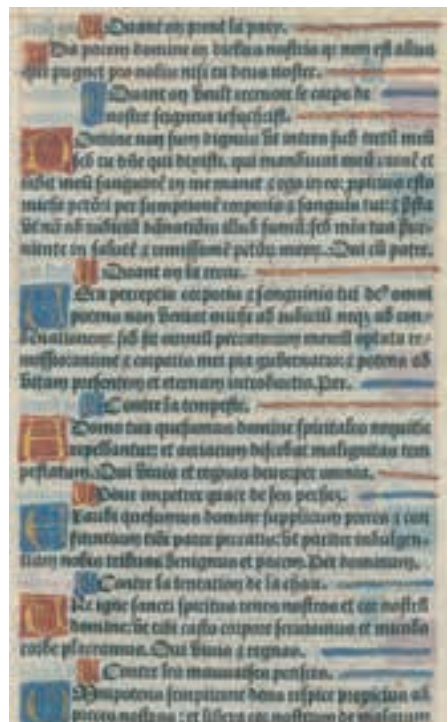 Quant on prent la paix.
Da pacem domine in diebus nostris qr non est alius
qui pugnet pro nobis nisi tu deus noster.
Quant on veult recevoir le corps de
nostre seigneur jesuchrist.
Domine non sum dignus ut intres sub tectū meū
sed tu dñe qui dixisti, qui manducat meā carnē et
bibit meū sanguinē in me manet et ego in eo: esto
michi per sumptionē corporis et sanguinis tui: et
ut nō ad judiciū sumā sed
Qui cū patre.
Quant on la receu.
perceptio corporis et sanguinis tui omni
potens non veniat michi ad judiciū neque ad con
demnationem: sed sit omniū peccatorum meorū optata re
missio: anime et corporis mei pia gubernatio: et potens ad
vitam presentem et eternam introductio. Per.
Contre la tempeste.
A Domo tua quesumus domine spiritales nequitie
repellantur: et aeriarum discedat malignitas tem
pestatum. Qui vivis et regnas
Pour impetrer grace de ses pechez.
Exaudi quesumus domine supplicum preces et con
fitentium tibi parce peccatis: ut pariter indulgen
tiam nobis tribuas benignus et pacem. Per dominum.
Contre la tentation de la chair.
Ure igne sancti spiritus renes nostros et cor nostrū
domine: ut tibi casto corpore serviamus et mundo
corde placeamus. Qui vivis et regnas.
Contre les mauvaises pensees.
Omnipotens sempiterne deus respice propicius ad
preces nostras: et libera cor nostrum de